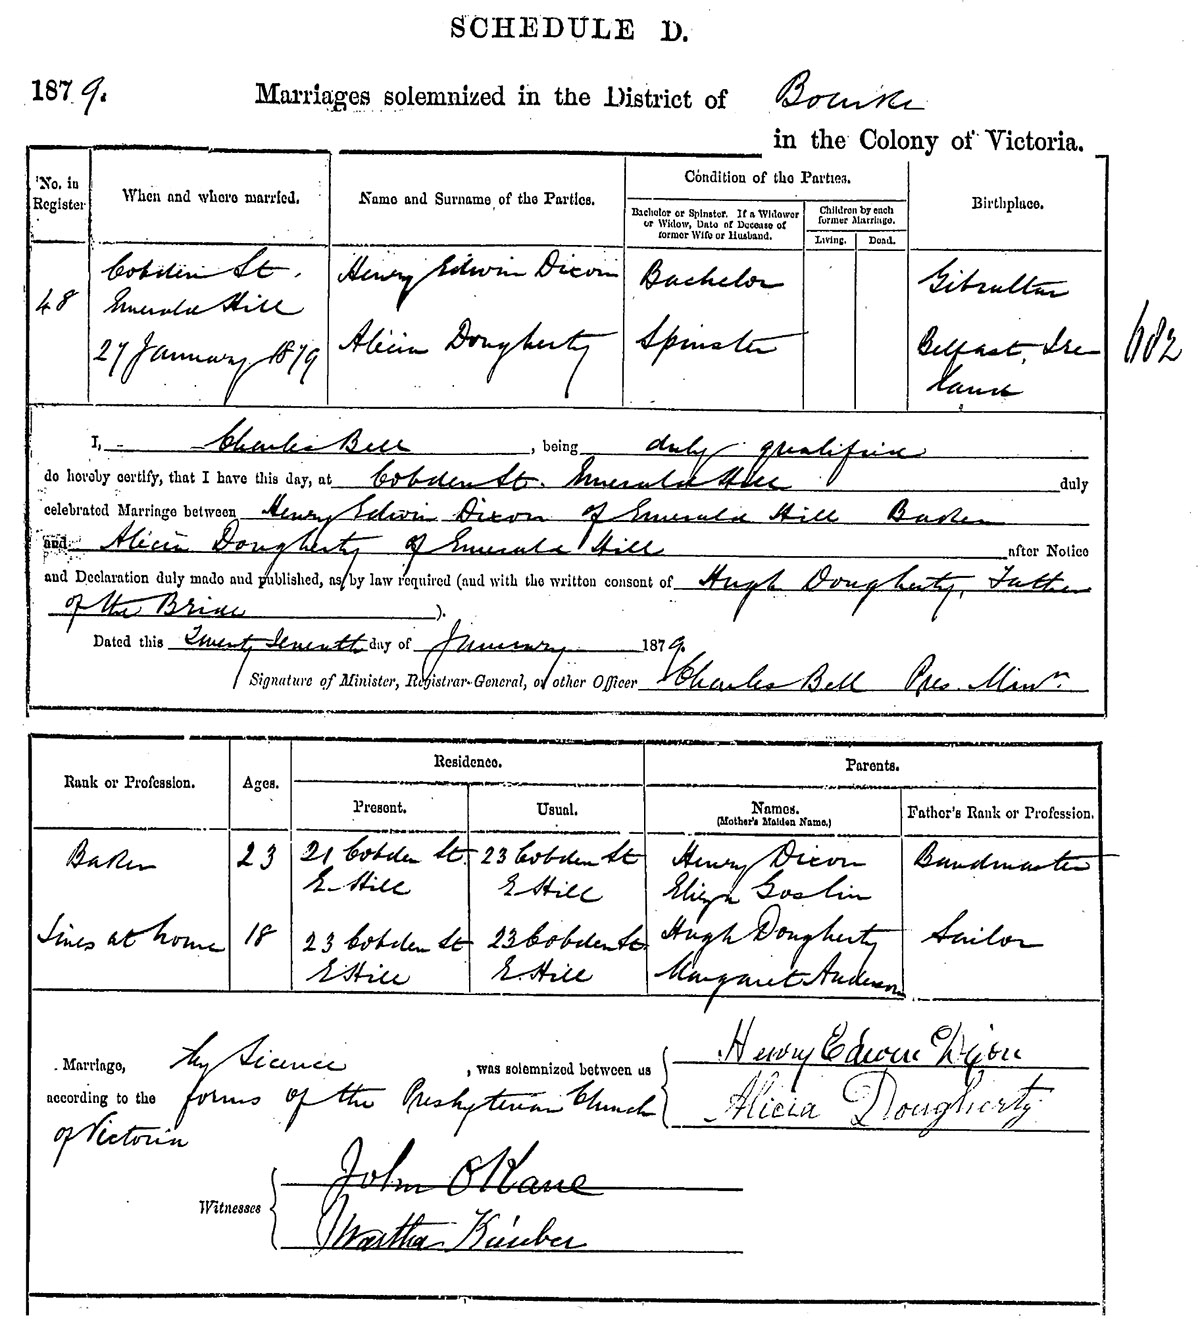 SCHEDULE D.
1879. Marriages solemnized in the District of Bourke
in the Colony of Victoria.
No. in Register
When and where married.
Name and Surname of the Parties.
Condition of the Parties.
Bachelor or Spinster. If a Widower or Widow, Date of Decease of former Wife or Husband.
Children by each former Marriage.
Living. Dead.
Birthplace.
48
Cobden St.
Emerald Hill
27 January 1879
Henry Edwin Dixon
Bachelor
Gibraltar
Alicia Dougherty
Spinster
Belfast, Ire
land
682
I, Charles Bell, being duly qualified
do hereby certify, that I have this day, at Cobden St. Emerald Hill duly
celebrated Marriage between Henry Edwin Dixon of Emerald Hill Baker
and Alicia Dougherty of Emerald Hill after Notice
and Declaration duly made and published, as by law required (and with the written consent of Hugh Dougherty, Father
of the Bride ).
Dated this Twenty Seventh day of January 1879.
Signature of Minister, Registrar-General, or other Officer Charles Bell Pres. Minr.
Rank or Profession.
Ages.
Residence.
Present.
Usual.
Parents.
Names.
(Mother's Maiden Name.)
Father's Rank or Profession.
Baker 23 21 Cobden St. 23 Cobden St Henry Dixon Bandmaster
E Hill E Hill Eliza Goslin
Lives at home 18 23 Cobden St 23 Cobden St. Hugh Dougherty Sailor
E Hill E. Hill Margaret Anderson
Marriage, by Licence, was solemnized between us
according to the forms of the Presbyterian Church
of Victoria
Henry Edwin Dixon
Alicia Dougherty
Witnesses
John OKane
Martha Kimber